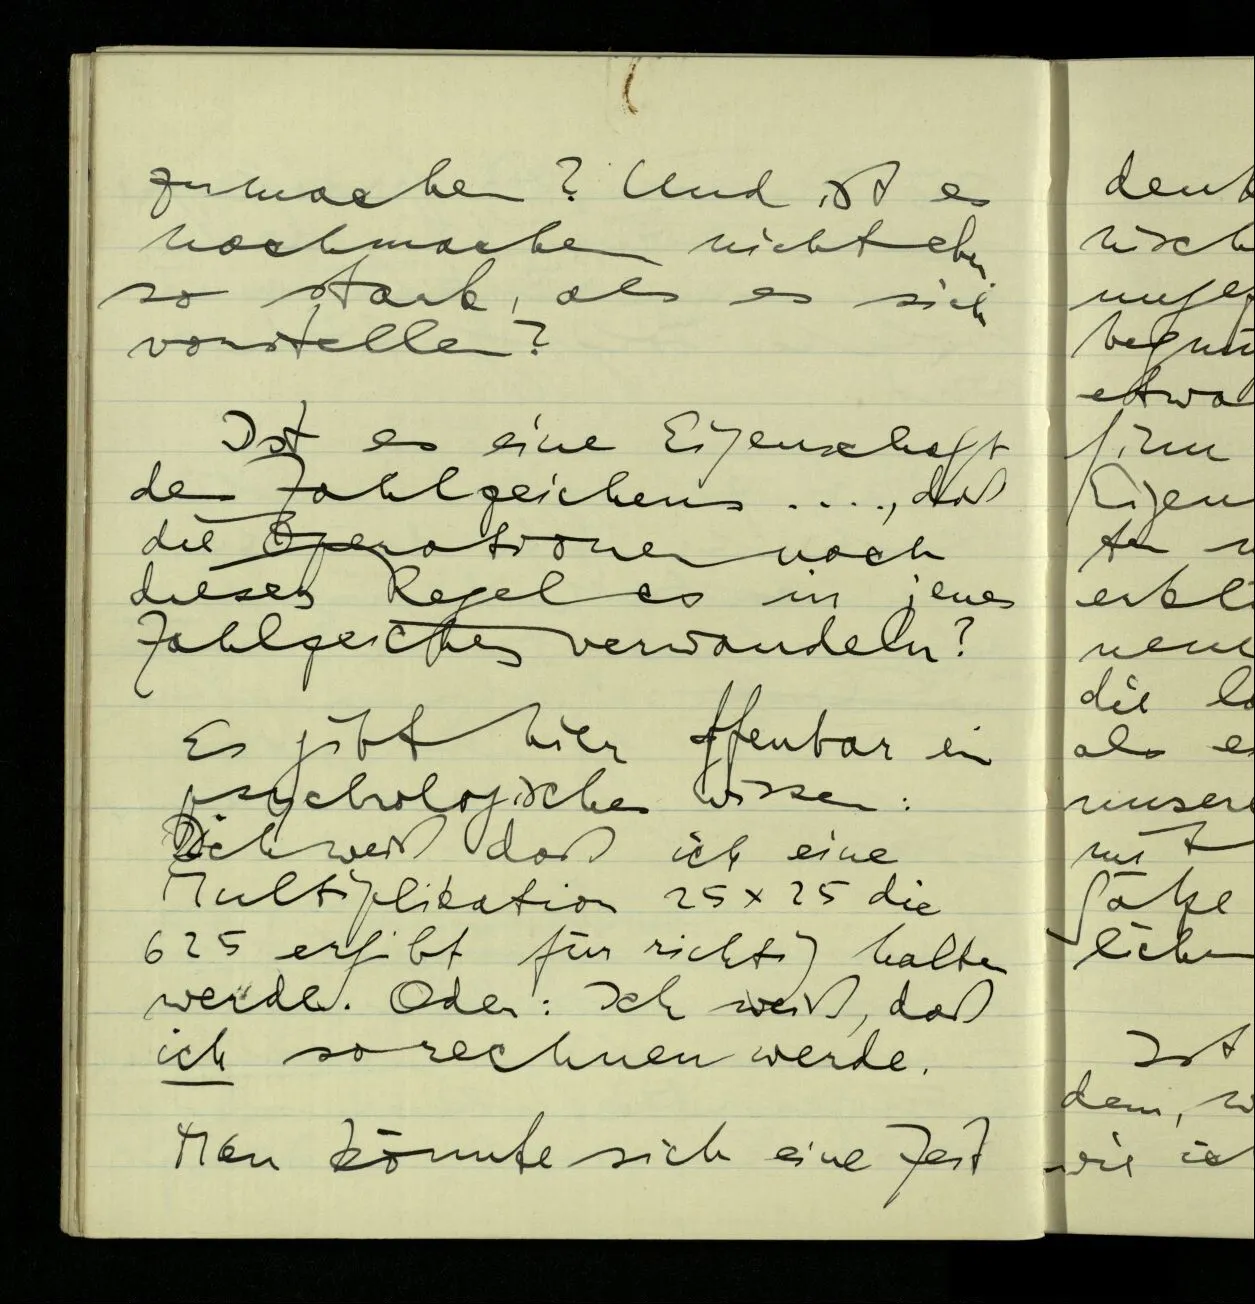 zumachen? Und ist es
nachmachen nicht eben
so stark, als es sich
vorstellen?
Ist es eine Eigenschaft
des Zahlzeichens ...., daß
die Operationen nach
dieser Regel es in jenes
Zahlzeichen verwandeln?
Es gibt hier offenbar ein
psychologisches wissen:
Ich weiß daß ich eine
Multiplikation 25 x 25 die
625 ergibt für richtig halten
werde. Oder: Ich weiß, daß
ich so rechnen werde.
Man könnte sich eine Zeit
etwa
die
als es
mit
Ist
dem,
wie ich